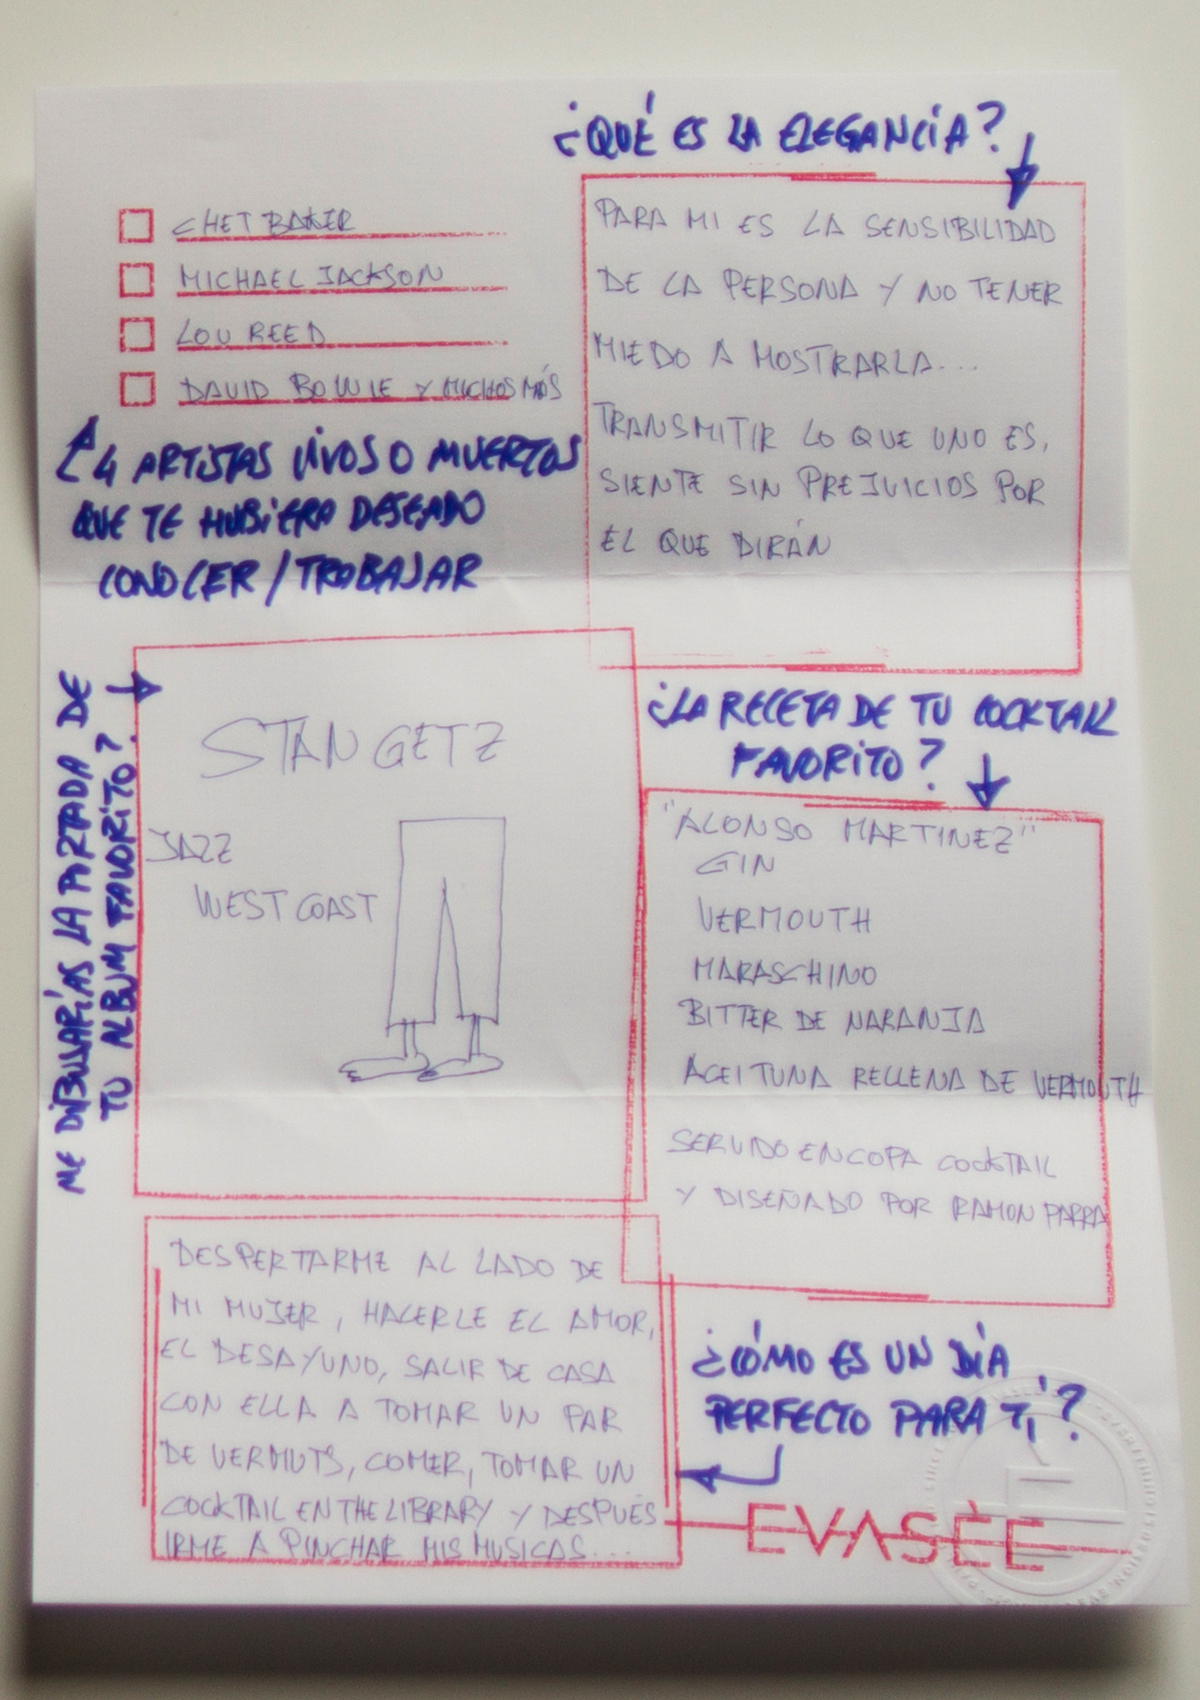 ¿QUÉ ES LA ELEGANCIA?
PARA MI ES LA SENSIBILIDAD
DE LA PERSONA Y NO TENER
MIEDO A MOSTRARLA...
TRANSMITIR LO QUE UNO ES,
SIENTE SIN PREJUICIOS POR
EL QUE DIRÁN
CHET BAKER
MICHAEL JACKSON
LOU REED
DAVID BOWIE Y MUCHOS MÁS
4 ARTISTAS VIVOS O MUERTOS
QUE TE HUBIERA DESEADO
CONOCER / TRABAJAR
ME DIBUJARÍAS LA PORTADA DE
TU ALBUM FAVORITO?
STAN GETZ
JAZZ
WEST COAST
¿LA RECETA DE TU COCKTAIL
FAVORITO?
"ALONSO MARTINEZ"
GIN
VERMOUTH
MARASCHINO
BITTER DE NARANJA
ACEITUNA RELLENA DE VERMOUTH
SERVIDO EN COPA COCKTAIL
Y DISEÑADO POR RAMON PARRA
DESPERTARME AL LADO DE
MI MUJER, HACERLE EL AMOR,
EL DESAYUNO, SALIR DE CASA
CON ELLA A TOMAR UN PAR
DE VERMUTS, COMER, TOMAR UN
COCKTAIL EN THE LIBRARY Y DESPUÉS
IRME A PINCHAR MIS MUSICAS....
¿CÓMO ES UN DÍA
PERFECTO PARA TÍ?
EVASÈE